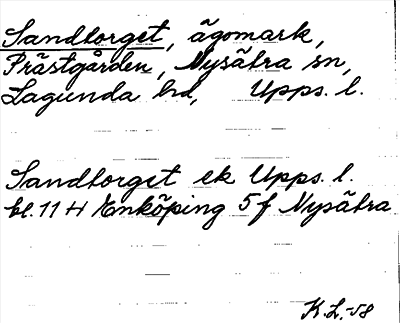 Sandtorget, ägomark,
Prästgården, Nysätra sn,
Lagunda hd, Upps. l.
Sandtorget ek Upps. l.
bl. 11 H Enköping 5 f Nysätra
K.L.-58